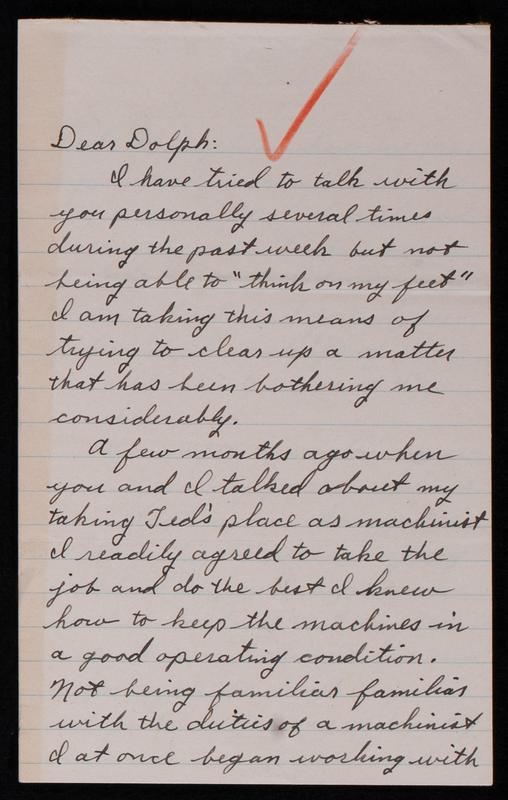 Dear Dolph:
I have tried to talk with
you personally several times
during the past week but not
being able to "think on my feet"
I am taking this means of
trying to clear up a matter
that has been bothering me
considerably.
A few months ago when
you and I talked about my
taking Ted's place as machinist
I readily agreed to take the
job and do the best I knew
how to keep the machines in
a good operating condition.
Not being familiar familiar
with the duties of a machinist
I at once began working with